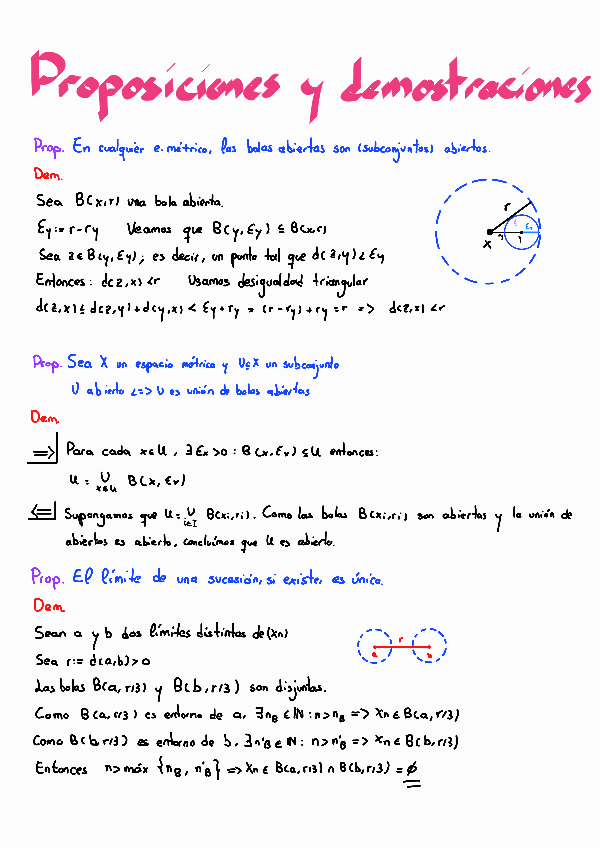 Proposiciones y demostraciones
Prop. En cualquier e. métrico, las bolas abiertas son (subconjuntos) abiertos.
Dem.
Sea B(x,r) una bola abierta.
Ey := r - ry Veamos que B(y, Ey) ⊆ B(x,r)
Sea z ∈ B(y, Ey); es decir, un punto tal que d(z,y) < Ey
Entonces: d(z,x) < r Usamos desigualdad triangular
d(z,x) ≤ d(z,y) + d(y,x) < Ey + ry = (r - ry) + ry = r => d(z,x) < r
r
x
Prop. Sea X un espacio métrico y U ⊆ X un subconjunto
U abierto <=> U es unión de bolas abiertas
Dem.
=> Para cada x ∈ U, ∃ Ex > 0 : B(x, Ex) ⊆ U entonces:
U = ∪ x∈U B(x, Ex)
<= Supongamos que U = ∪ i∈I B(xi, ri). Como las bolas B(xi, ri) son abiertas y la unión de
abiertos es abierto, concluimos que U es abierto.
Prop. El límite de una sucesión, si existe, es único.
Dem.
Sean a y b dos límites distintos de (xn)
Sea r := d(a,b) > 0
Las bolas B(a, r/3) y B(b, r/3) son disjuntas.
Como B(a, r/3) es entorno de a, ∃ nB ∈ IN : n > nB => xn ∈ B(a, r/3)
Como B(b, r/3) es entorno de b, ∃ n'B ∈ IN : n > n'B => xn ∈ B(b, r/3)
Entonces n > máx {nB, n'B} => xn ∈ B(a, r/3) ∩ B(b, r/3) = ∅
r
a
b